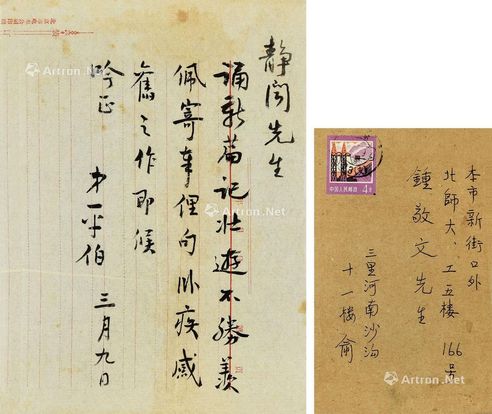 静闻先生
诵新篇记壮遊不胜羡
佩寄奉俚句卧疾感
旧之作即候
吟正
弟平伯 三月九日
本市新街口外
北師大、工五楼 166号
鍾敬文先生
三里河南沙沟
十一楼 俞
中国人民邮政
4分
Artron.Net
Artron.Net
Artron.Net
Artron.Net
Artron.Net